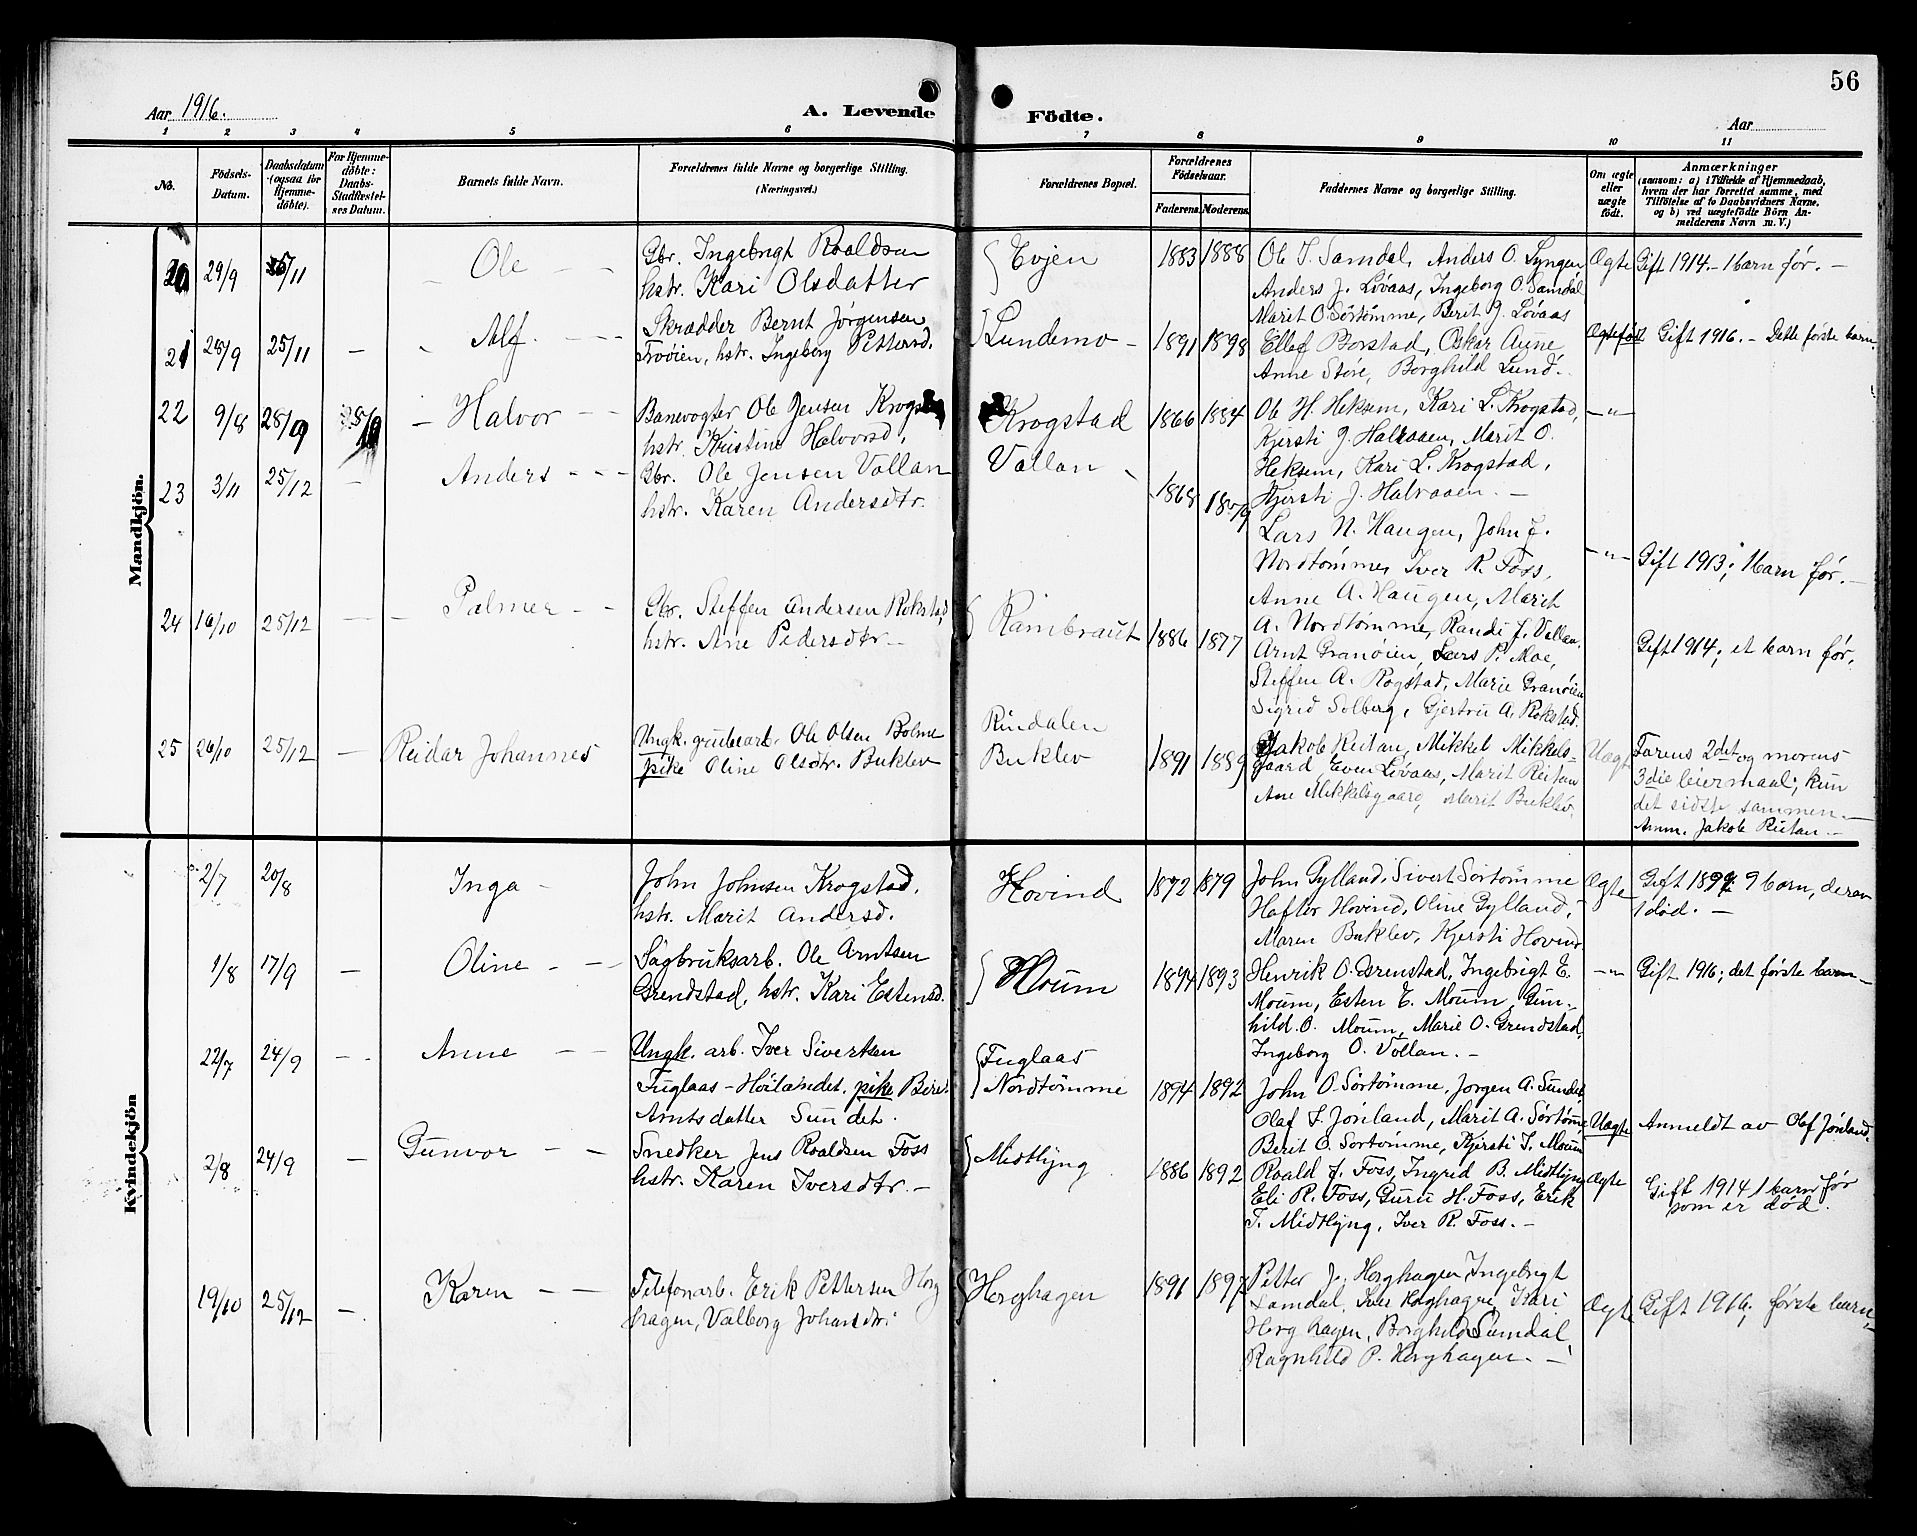 56
Aar 1916.
A. Levende Födte.
Aar
1 2 3 4 5 6 7 8 9 10 11
No.
Födsels-Datum.
Daabsdatum (ogsaa for Hjemme-døbte).
For Hjemme-døbte: Daabs-Stadfæstel-ses Datum.
Barnets fulde Navn.
Forældrenes fulde Navne og borgerlige Stilling. (Næringsvei.)
Forældrenes Bopæl.
Forældrenes Födselsaar.
Faderens. Moderens.
Faddernes Navne og borgerlige Stilling.
Om ægte eller uægte født.
Anmærkninger
(saasom: a) i Tilfælde af Hjemmedaab,
hvem der har forrettet samme, med
Tilføielse af to Daabsvidners Navne,
og b) ved uægtefødte Börn An-
melderens Navn m. V.)
Mandkjön.
20 29/9 26/11 Ole
Gbr. Ingebrigt Roaldsen
hstr. Kari Olsdatter
Evjen 1883 1888
Ole I. Samdal, Anders O. Lyngen,
Anders J. Løvaas, Ingeborg O. Samdal
Marit O. Sørtømme, Berit J. Løvaas
Ægte Gift 1914. - 1 barn før. -
21 28/9 25/11 - Alf.
Skrædder Bernt Jørgensen
Trøøien, hstr. Ingeborg Pettersd.
Lundemo - 1891 1898
Ellef Borstad, Oskar Aune
Anne Støre, Borghild Lund.
Ægtefødt Gift 1916. - Dette første barn.
22 9/8 28/9 - Halvor
Banevogter Ole Jensen Krogstad
hstr. Kristine Halvorsd.
Krogstad 1866 1884
Ole H. Heksem, Kari L. Krogstad,
Kjersti J. Halvaaen, Marit O.
Heksem, Kari L. Krogstad,
Kjersti J. Halvaaen. -
-"-
23 3/11 25/12 - Anders
Gbr. Ole Jensen Vollan
hstr. Karen Andersdtr.
Vollan 1868 1879
Lars N. Haugen, John J.
Nordtømme, Iver R. Foss,
Anne A. Haugen, Marit
A. Nordtømme, Randi J. Vollan.
-"- Gift 1913; 1 barn før. -
24 16/10 25/12 - Palmer
Gbr. Steffen Andersen Rokstad,
hstr. Ane Pedersdtr. -
Rambraut 1886 1877
Arnt Granøien, Lars P. Moe,
Steffen A. Rogstad, Marie Granøien
Sigrid Solberg, Gjertru A. Rokstad.
Gift 1914; et barn før.
25 26/10 25/12 - Reidar Johannes
Ungk. grubearb. Ole Olsen Bolme
pike Oline Olsdtr. Buklev
Rindalen
Buklev 1891 1889
Jakob Reitan, Mikkel Mikkels-
gaard Even Løvaas, Marit Reitan
Ane Mikkelsgaard, Marit Buklev.
Uægte Farens 2det og morens
3die leiermaal; kun
det sidste sammen. -
Anm. Jakob Reitan -
Kvindekjön
2/7 20/8 Inga -
John Johnsen Krogstad,
hstr. Marit Andersd.
Hovind 1872 1879
John Gylland, Sivert Sørtømme
Hafter Hovind, Oline Gylland,
Maren Buklev, Kjersti Hovind.
Ægte Gift 1899. 9 barn, derav
1 død. -
1/8 17/9 - Oline
Sagbruksarb. Ole Arntsen
Grendstad, hstr. Kari Estensd.
Moum 1894 1893
Henrik O. Grenstad, Ingebrigt E.
Moum, Esten E. Moum, Gun-
hild O. Moum, Marie O. Grendstad,
Ingeborg O. Vollan. -
-"- Gift 1916; det første barn -
22/7 24/9 - Anne
Ungk. arb. Iver Sivertsen
Fuglaas - Høilandet, pike Berit
Arntsdatter Sundet.
Fuglaas
Nordtømme 1894 1892
John O. Sørtømme, Jorgen A. Sundet
Olaf L. Jønland, Marit A. Sørtøm,
Berit O. Sørtømme, Kjersti I. Moum
Uægte Anmeldt av Olaf Jønland.
2/8 24/9 - Gunvor
Snedker Jens Roaldsen Foss
hstr. Karen Iversdtr. -
Midtlyng 1886 1892
Roald J. Foss, Ingrid B. Midtlyng
Eli R. Foss, Guru H. Foss, Erik
T. Midtlyng, Iver R. Foss. -
Ægte Gift 1914 1 barn før
som er død.
19/10 25/12 - Karen
Telefonarb. Erik Pettersen Horg
hagen, Valborg Johansdtr.
Horghagen 1891 1897
Petter J. Horghagen, Ingebrigt
Samdal, Iver Horghagen, Kari
Horghagen, Borghild Samdal,
Ragnhild P. Horghagen. -
Ægte Gift 1916; første barn, -